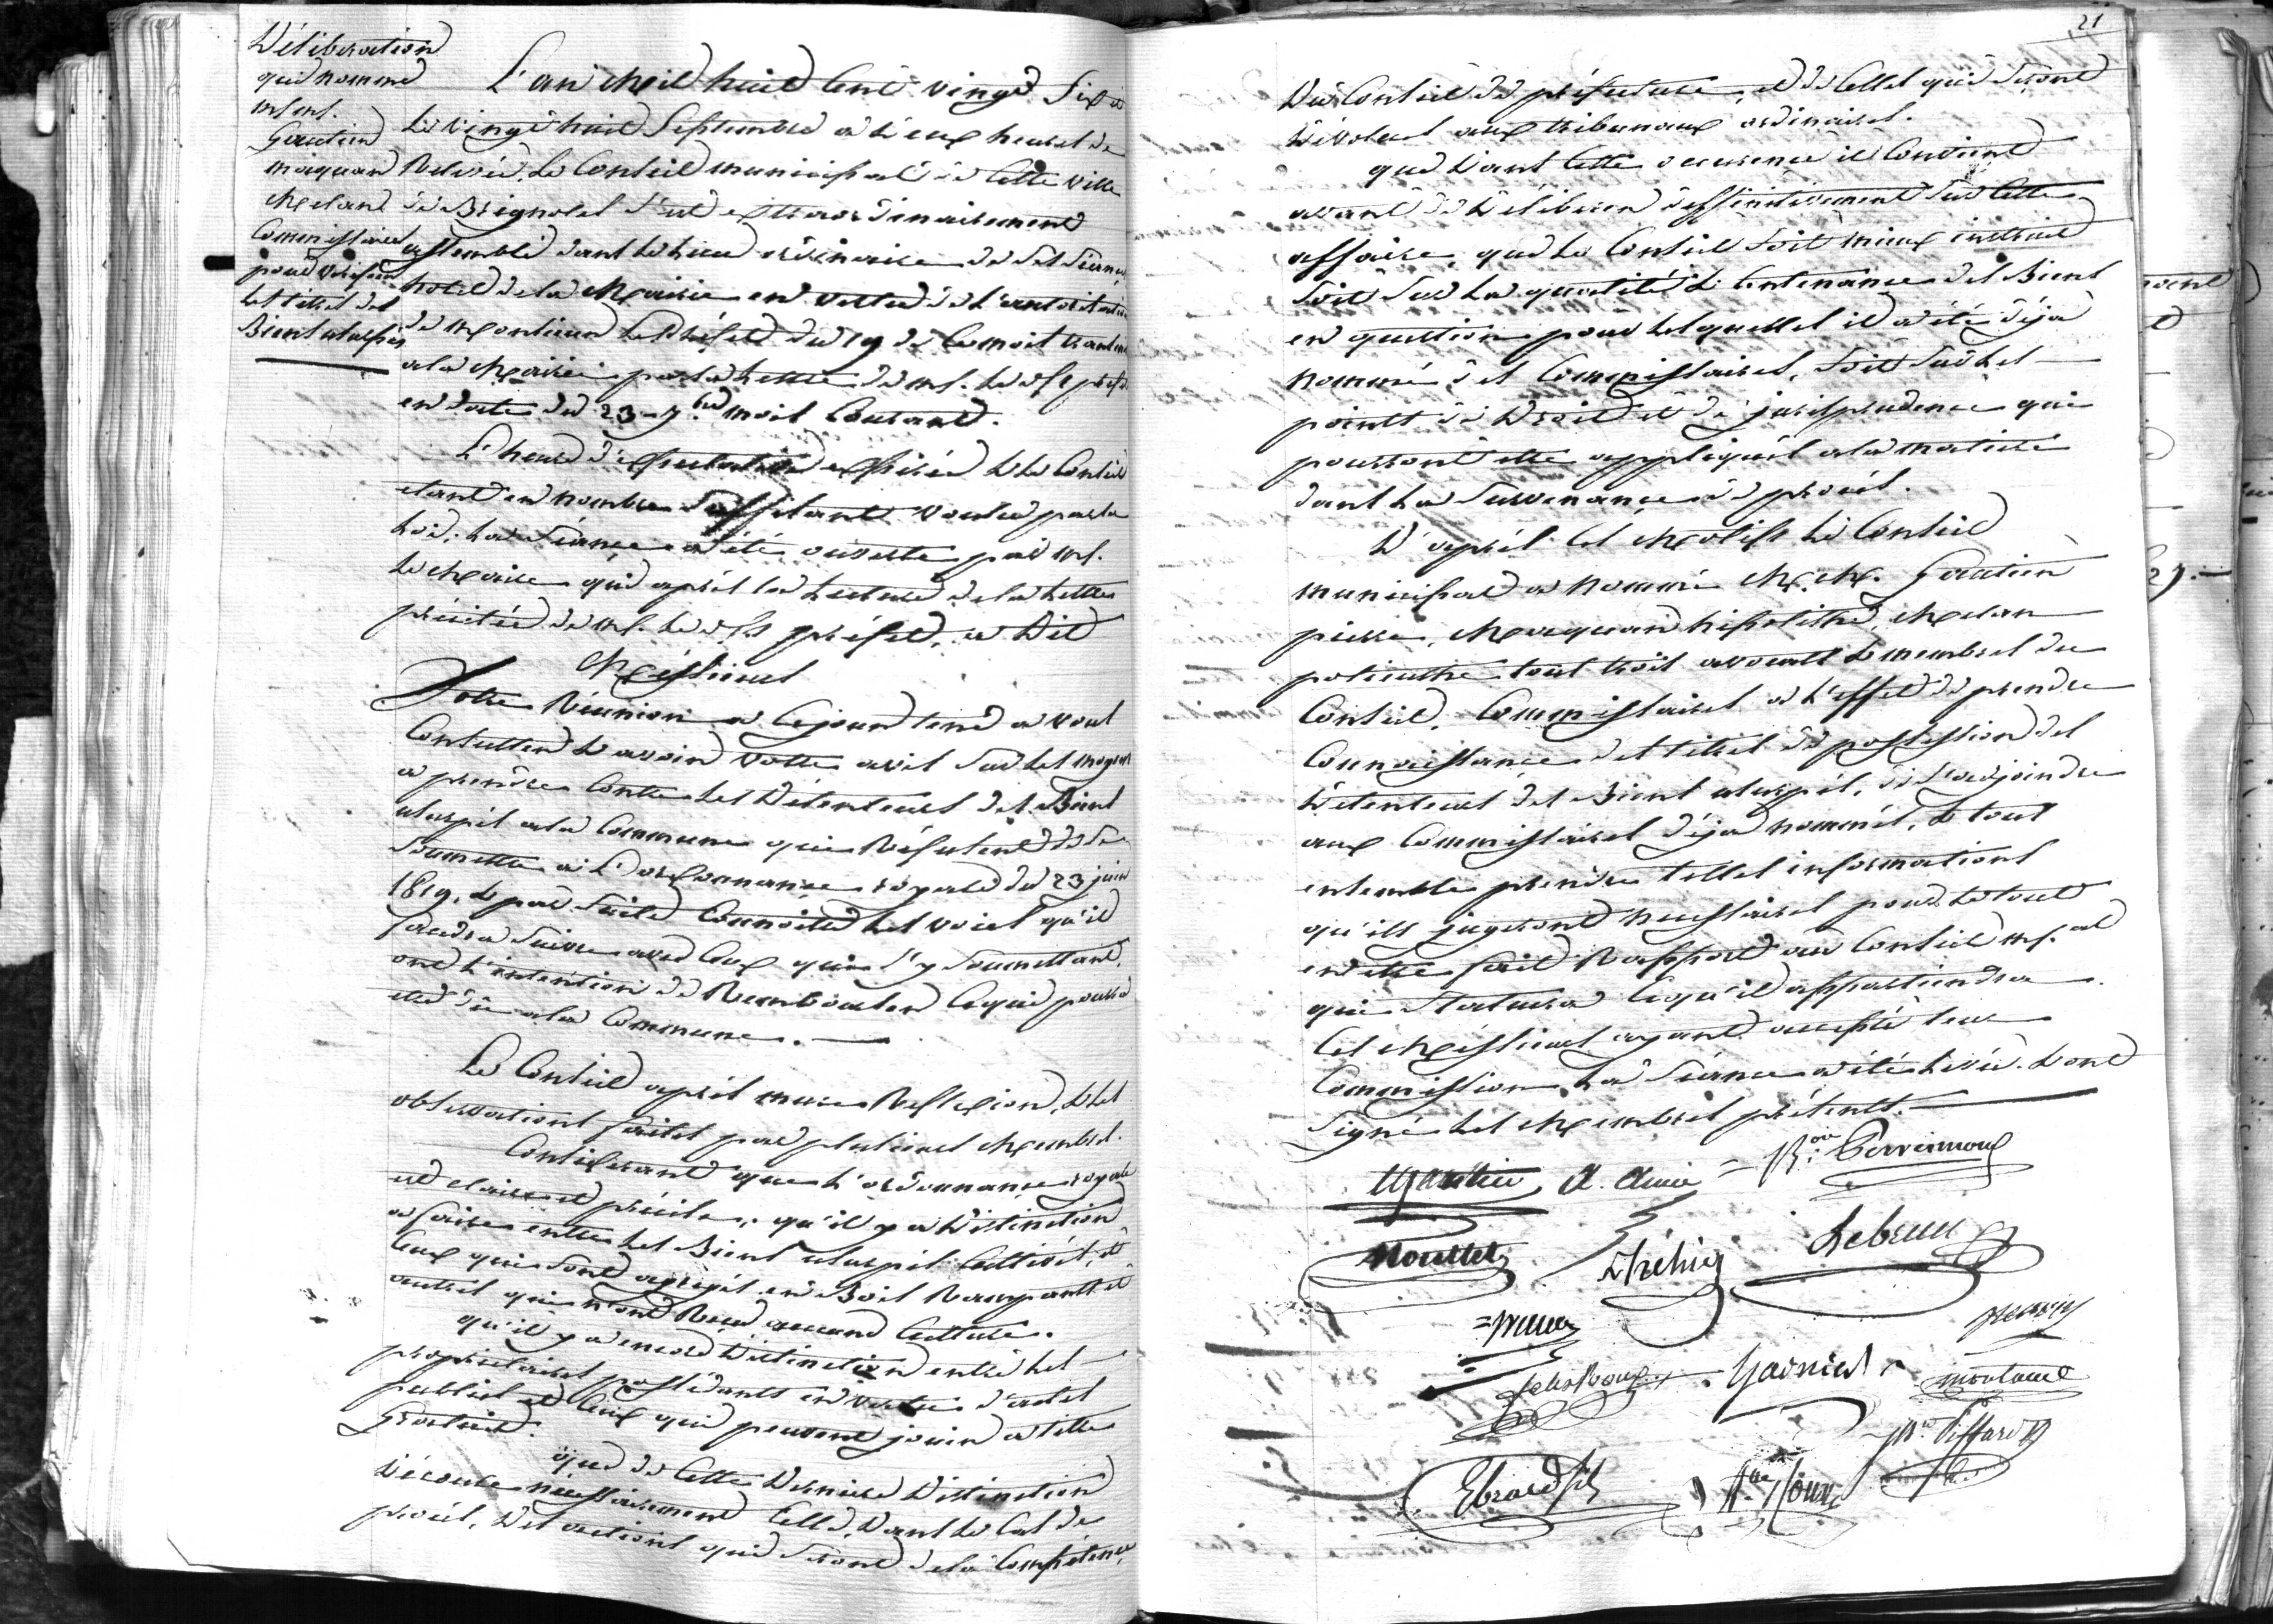 Déliberation
qui nomme
MM.
Gautier
maquan
Melan
Commissaires
pour vérifier
les titres des
Biens usurpés
L'an Mil huit Cent vingt Six et
le vingt huit Septembre à deux heures de
Relevée, le Conseil municipal de cette ville
de Brignoles s'est extraordinairement
assemblé dans le lieu ordinaire de ses séances
hotel de la Mairie en vertu de l'autorisation
de Monsieur le Préfet du 19 de ce mois transmise
a la Mairie par la lettre de Mr. le s.s préfet
en date du 23 7bre mois Courant.
L'heure d'expectative expirée & le Conseil
etant en nombre suffisant voulu par la
loi, la Séance a été ouverte par Mr.
le Maire qui après la lecture de la lettre
précitée de Mr. le ss préfet, a dit
Messieurs
Votre Réunion de ce jour tend a vous
Consulter & avoir votre avis sur les moyens
a prendre contre les Détenteurs des Biens
usurpés a la Commune qui Réfusent de se
soumettre à l'ordonnance royale du 23 juin
1819, & par suite connoitre les voies qu'il
faudra suivre avec Ceux qui s'y soumettant,
ont l'intention de Rembourser ce qui pourra
etre dû a la Commune.
Le Conseil après mure Reflexion, & les
observations faites par plusieurs Membres.
Considerant que l'ordonnance royale
est claire et précise, qu'il y a distinction
a faire entre les Biens usurpés Cultivés, et
Ceux qui sont agrégés en Bois Rampants et
autres qui n'ont Reçu aucune Culture.
qu'il y a encore distinction entre les
propriétaires possédants en vertu d'actes
publics et Ceux qui peuvent jouir a titre
Gratuit.
que de cette dernière distinction
découle nécessairement celle, dans le Cas de
procès, des actions qui seront de la Compétence
21
du Conseil de préfecture, et de Celles qui seront
dévolues aux tribunaux ordinaires.
que dans Cette occurence il Convient
avant de déliberer deffinitivement sur Cette
affaire, que le Conseil soit mieux instruit
soit sur la quotité & Contenance des Biens
en question pour lesquelles il a été déjà
nommé des Commissaires, soit sur les
points de Droit et de jurisprudence qui
pourront etre appliqués a la matière
dans la survenance de procès.
D'après Ces Motifs le Conseil
municipal a nommé M.M. Gautier
pierre, Maquan hipolithe, Melan
policarpe tous trois avocats & membres du
Conseil, Commissaires a l'effet de prendre
Connaissance des titres de possession des
Détenteurs des Biens usurpés, de s'adjoindre
aux Commissaires déja nommés, & tous
ensemble prendre telles informations
qu'ils jugeront necessaires pour le tout
en etre fait Rapport au Conseil M.al
qui statuera Ce qu'il appartiendra.
Ces Messieurs ayant accepté leur
Commission, la Séance a été levée. & ont
Signé les Membres présents.
Gautier
Perreimond
Moullet
Lebrun
felix Roux
Garnier
Piffard
Ebrard fils
Roux